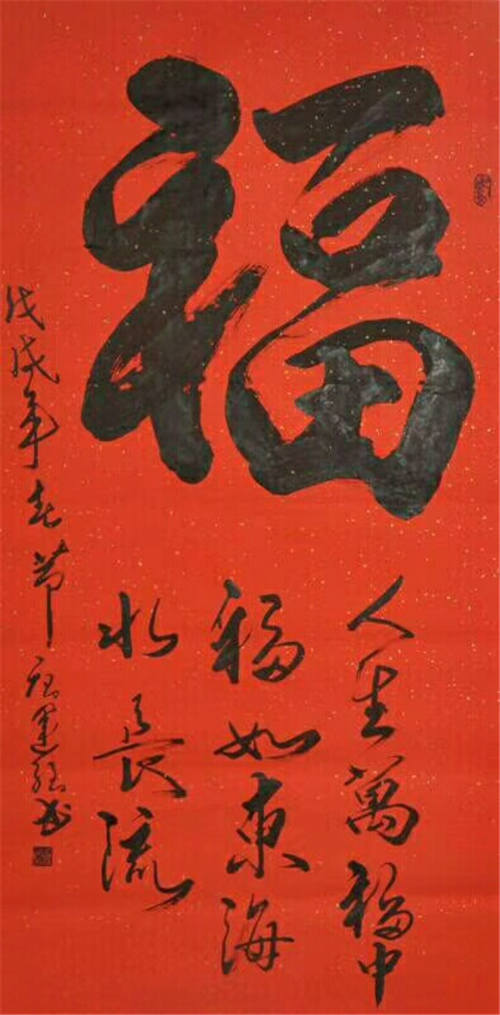 福
人生萬福中
福如東海
水長流
戊戌年春节 书